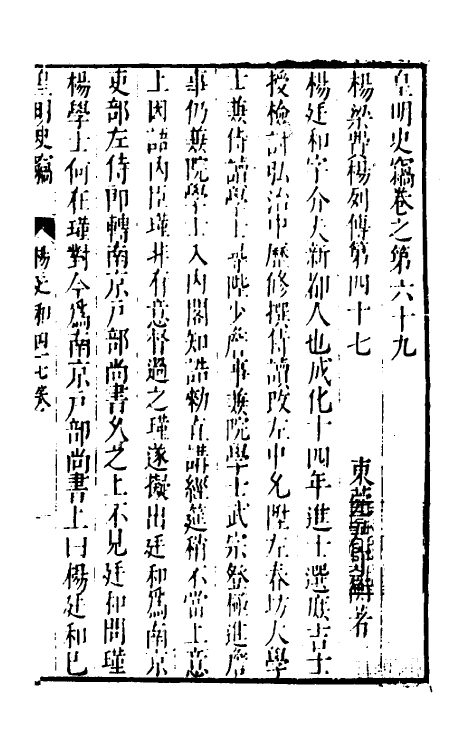 皇明史竊卷之第六十九
楊梁費楊列傳第四十七
東莞尹守衡著
楊廷和字介夫新都人也成化十四年進士選庶吉士
授檢討弘治中歷修撰侍讀改左中允陞左春坊大學
士兼侍讀學士尋陞少詹事兼院學士武宗登極進詹
事仍兼院學士入內閣知誥勅直講經筵稍不當上意
上因語內臣瑾非有意督過之瑾遂擬出廷和為南京
吏部左侍郎轉南京戶部尚書久之上不見廷和問瑾
楊學士何在瑾對今為南京戶部尚書上曰楊廷和已
皇明史竊 楊廷和四十七卷 一